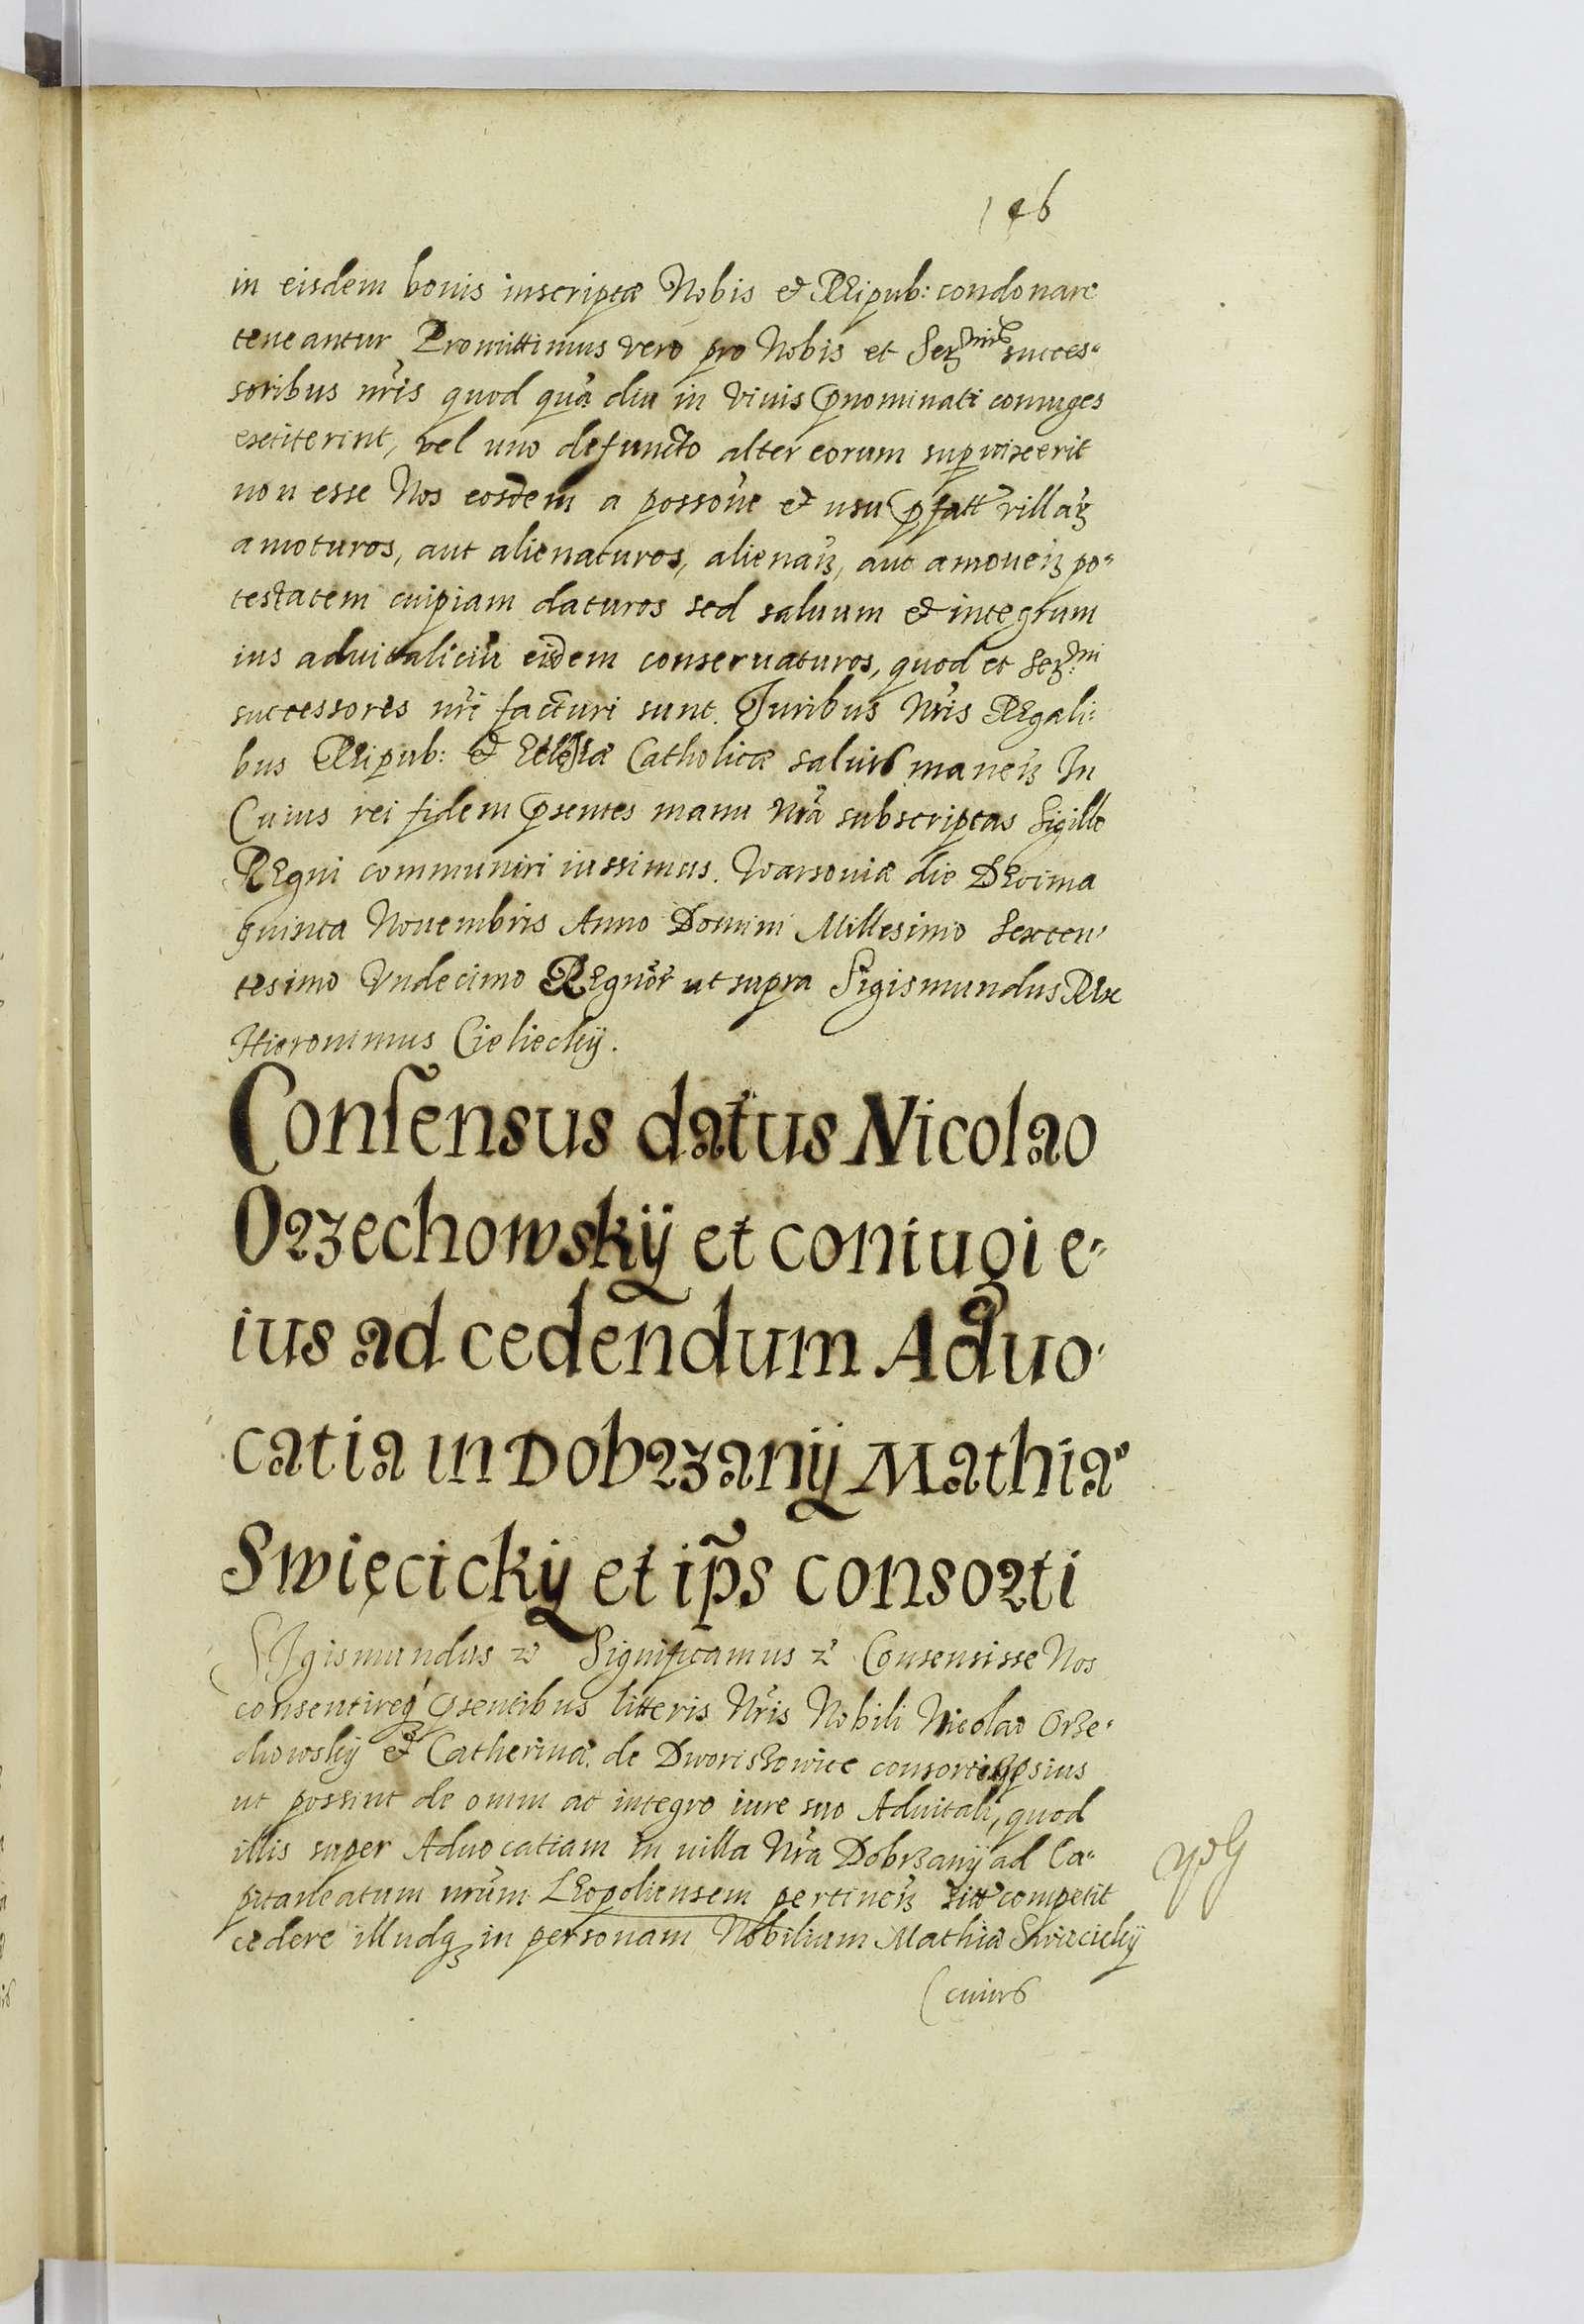 146
in eisdem bonis inscriptæ Nobis et REipub: condonare
teneantur Promittimus vero pro Nobis et Serᵐⁱˢ succes-
soribus nr̃is quod quã diu in viuis p̃nominati coniuges
extiterint, vel uno defuncto alter eorum supuixerit
non esse Nos eosdem a possõne et usu p̃fatt villaꝝ
amoturos, aut alienaturos, alienaꝝ, aut amoueꝝ po-
testatem cuipiam daturos sed saluum et integrum
ius aduitaliciũ eisdem conseruaturos, quod et Serᵐⁱ
successores nr̃i facturi sunt. Juribus Nr̃is REgali-
bus REipub: et Ecclesiæ Catholicæ saluis maneꝝ In
Cuius rei fidem p̃sentes manu Nr̃a subscriptas Sigillo
REgni communiri iussimus. Warsouiæ die DEcima
quinta Nouembris Anno Domini Millesimo Sexcen-
tesimo Vndecimo REgnor̃ ut supra Sigismundus REx
Hieronimus Cieliecky.
Consensus datus Nicolao
Orzechowskÿ et coniugi e-
ius ad cedendum Aduo-
catia in Dobrzanÿ Mathiæ
Swięcickÿ et ip̃s consorti
SIgismundus Significamus Consensisse Nos
consentireq́ p̃sentibus litteris Nr̃is Nobili Nicolao Orze-
chowskÿ et Catherinæ de Dworiszowice consorti ipsius
ut possint de omni ac integro iure suo Aduitali, quod
illis super Aduocatiam in uilla Nr̃a Dobrzanÿ ad Ca-
pitaneatum nr̃um LEopoliensem pertineꝝ competit
cedere illudq in personam Nobilium Mathiæ Swięcickÿ
cuius